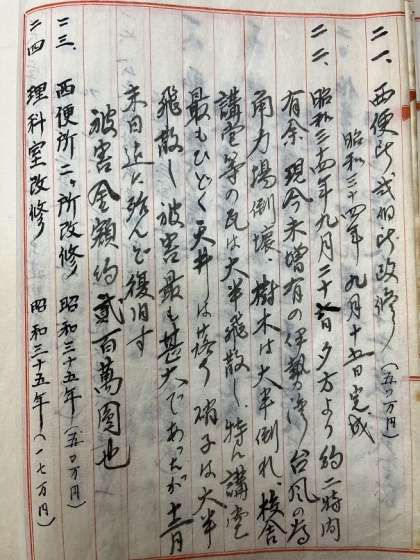 二一、西便所、我旧所改修（五〇万円）
昭和三十四年九月十五日完成
二二、昭和三十四年九月二十六日夕方より約二時間
有余、現今未増有の伊勢湾台風の為
角力場倒壊、樹木は大半倒れ、校舎
講堂等の瓦は大半飛散し、特に講堂
最もひどく天井は落り硝子は大半
飛散し被害最も甚大であったが十二月
末日迄に殆んど復旧す
被害金額約貳百萬圓也
二三、西便所二ヶ所改修 昭和三十五年（五〇万円）
二四 理科室改修 昭和三十五年（一七万円）